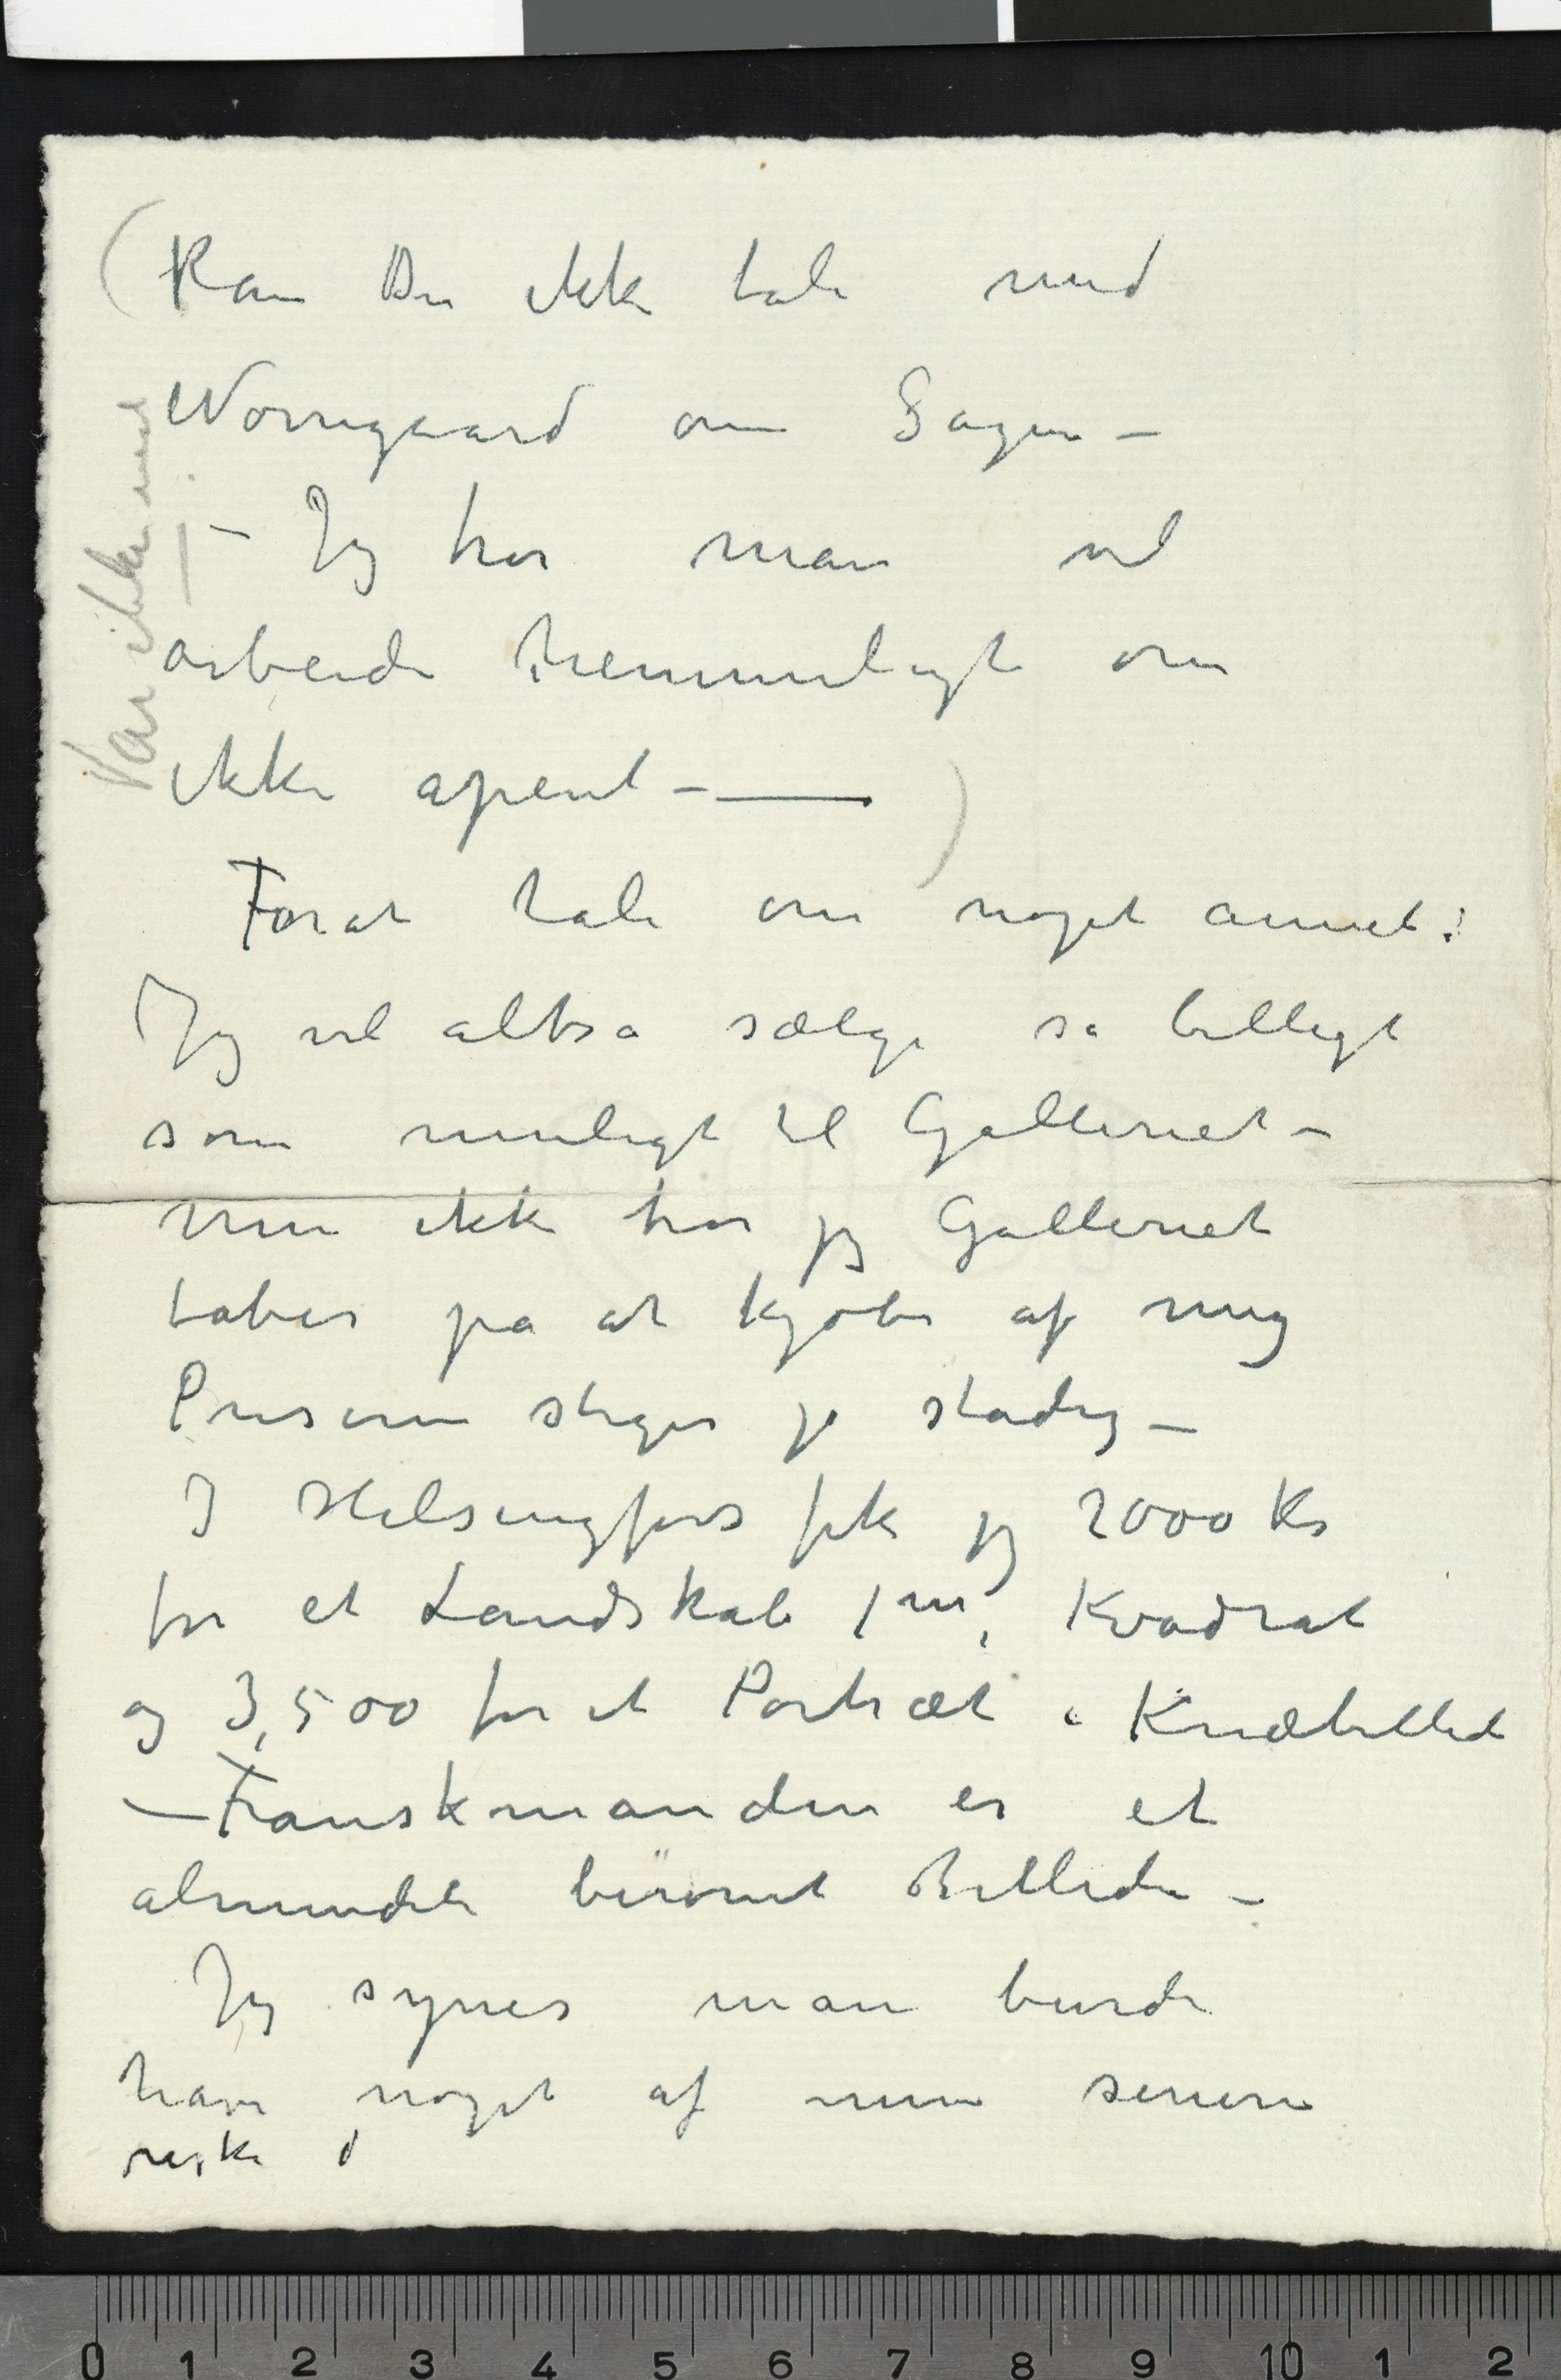 (Kan Du ikke tale med
Nørregaard om Sagen –
– Jeg tror man vil
arbeide hemmeligt om
ikke apent – —)
Var ikke med
Forat tale om noget annet:
Jeg vil altsa sælge sa billigt
som muligt til Galleriet –
men ikke tror jeg Galleriet
taber pa at kjøbe af mig
Priserne stiger jo stadig –
I Helsingfors fik jeg 2000 Kr
for et Landskab 1 m, Kvadrat
og 3,500 for et Portræt i Knæbilled
– Franskmanden er et
almindeli berømt Billede –
Jeg synes man burde
have noget af mine senere